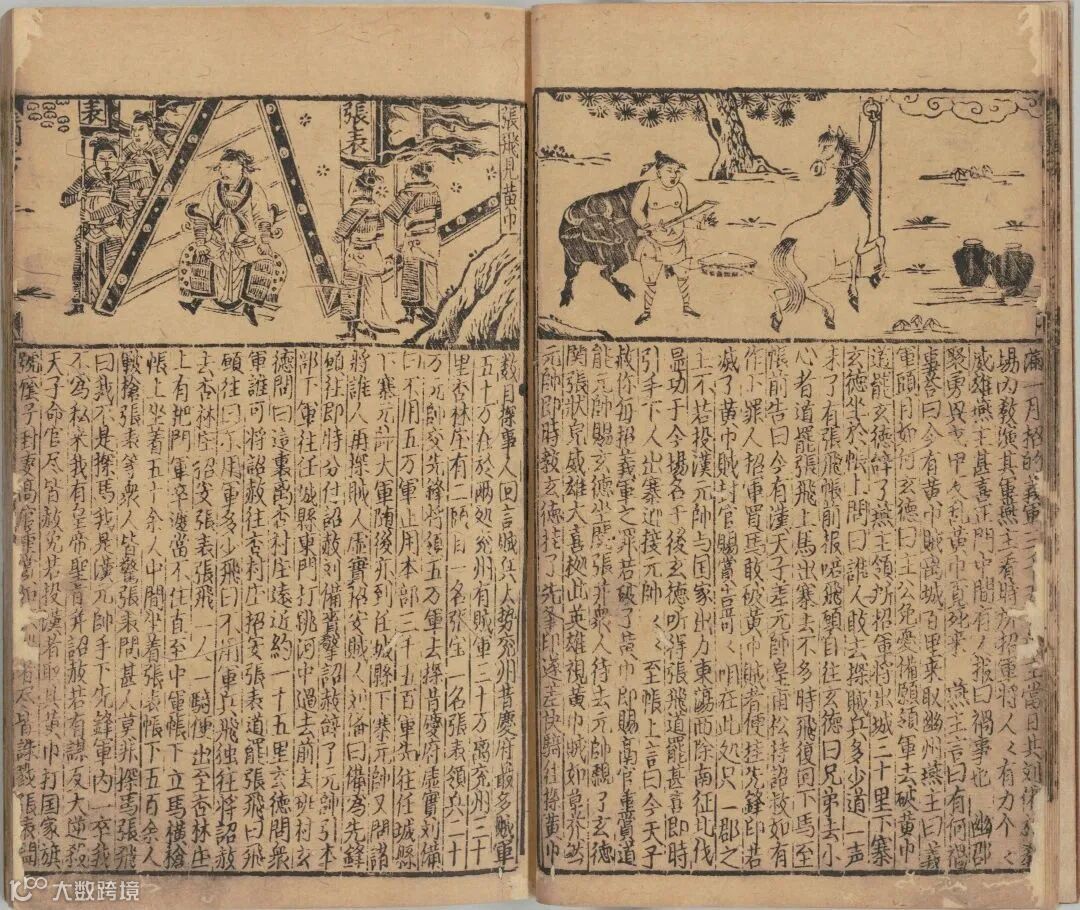 滿一月招的義軍三千 主當日其刘備 教
場内教演其軍燕主看時所招軍將人々有力个々
威雄燕主甚喜正閙中間有人報曰禍事也 幽郡
聚勇 甲 黃巾 死寨 燕主言曰有何禍
事荅曰今有黃巾賊离城百里來取幽州燕主曰義
軍頭目如何玄德曰主公免憂備願領軍去破黃巾
道罷玄德辝了燕主領所招軍將出城二十里下寨
玄德坐於帳上問曰誰人敢去探賊兵多少道一声
未了有張飛帳前报喏飛願自往玄德曰兄弟去小
心者道罷張飛上馬出寨去不多時飛復囬下馬至
帳前告曰今有漢天子差元帥皇甫松持詔赦如有
作小罪人招軍買馬敢破黃巾賊者便挂先鋒印若
滅了黃巾賊封官賜賞言可々明在此処只一郡之
主不若投漢元帥与国家出力東蕩西除南征北伐
显功于今塲名于後玄德听得張飛道罷甚喜即時
引手下人出寨迎接元帥々至帳上言曰今天子
赦你每招義軍之罪若破了黃巾即賜高官重賞道
罷元帥賜玄德坐関張并衆人待去元帥覷了玄德
関張狀皃威雄大喜據此英雄視黃巾賊如草芥然
元帥即時教玄德挂了先鋒印遂差快騎往探黃巾
張飛見黃巾
張表
表
數日探事人囬言賊兵大勢兖州昔慶府最多賊軍
五十万在於兩処兖州有賊軍三十万离兖州三十
里杏林庄有二頭目一名張宝一名張表領兵二十
万元帥交先鋒將領五万軍去探昔慶府虛實刘備
曰不用五万軍止用本部三千五百軍先往任城縣
下寨元帥大軍随後亦到任城縣下寨元帥又問諸
將誰人再探賊人虛實招安賊人刘備曰備為先鋒
願往即時分付詔赦刘備賫擎詔赦辝了元帥引本
部下軍往任城縣東門打跳河中過去前去班村玄
德問曰這裏离杏村庄遠近約一十五里玄德問衆
軍誰可將詔赦往杏村庄招安張表道罷張飛曰飛
願往曰可用軍多少飛曰不用軍兵飛独往將詔赦
去杏林庄招安張表張飛一人一騎便出至杏林庄
上有把門軍卒遮當不住直至中軍帳下立馬橫槍
帳上坐着五十余人中間坐着張表帳下五百余人
皷槍張表等衆人皆驚張表問甚人莫非探馬張飛
曰我不是探馬我是漢元帥手下先鋒軍内一卒我
不為私來我有皇帝聖旨并詔赦若有謀反大逆殺
天子命官尽皆赦免若投漢者耶其黃巾打国家旗
號廕子封妻高官重賞如 者尽皆誅戮張表聞
大数跨境